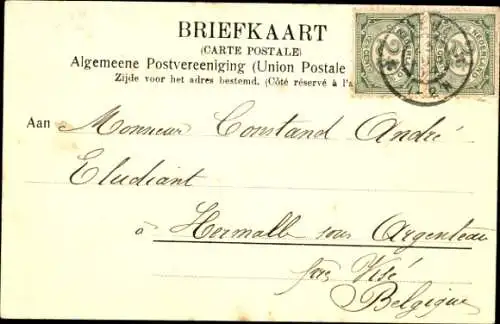 BRIEFKAART
(CARTE POSTALE)
Algemeene Postvereeniging (Union Postale
Zijde voor het adres bestemd. (Côté réservé à l'a
Aan Monsieur Constand André
Etudiant
à Hermalle sous Argenteau
par Visé
Belgique
NEDERLAND